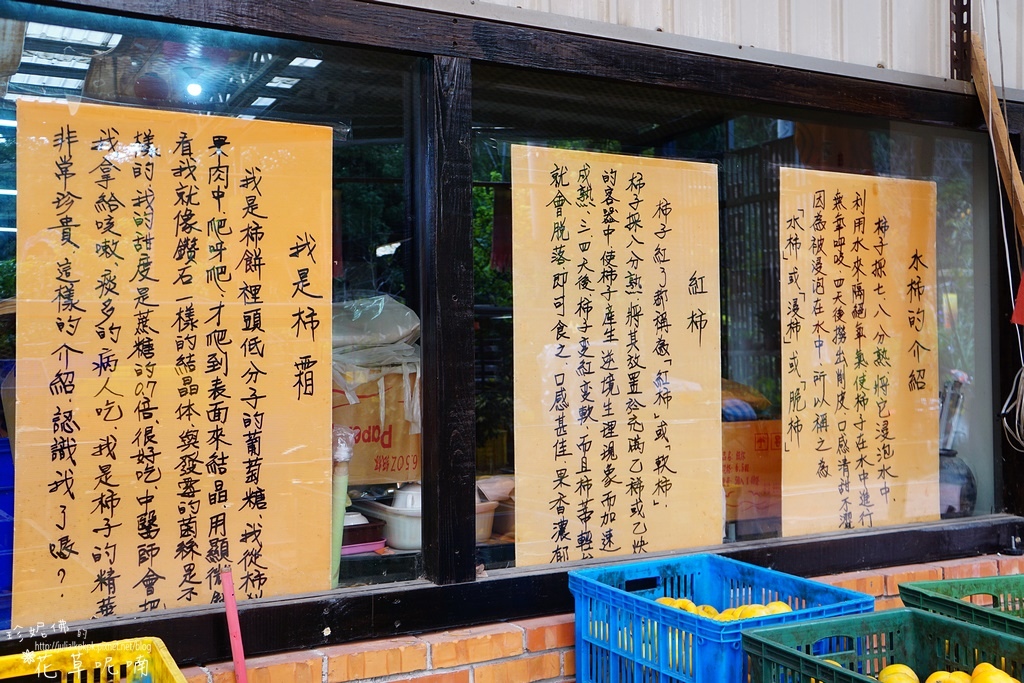 水柿的介紹
柿子採七、八分熟將它浸泡水中，
利用水來隔絕氧氣使柿子在水中進行
無氧呼吸，四天後撈出削皮，口感清甜不澀
因為被浸泡在水中，所以稱之為
「水柿」或「浸柿」或「脆柿」
紅柿
柿子紅了都稱為「紅柿」或「軟柿」
柿子採八分熟，將其放置於充滿乙稀或乙炔
的容器中使柿子產生逆境生理現象而加速
成熟，三、四天後柿子變紅變軟，而且柿蒂輕
就會脫落即可食之，口感甚佳，果香濃郁
我是柿霜
我是柿餅裡頭低分子的葡萄糖，我從柿
果肉中爬呀爬，才爬到表面來結晶，用顯微
看我就像鑽石一樣的結晶体，與發霉的菌絲是不
樣的，我的甜度是蔗糖的0.7倍，很好吃，中醫師會把
我拿給咳嗽、痰多的病人吃，我是柿子的精華
非常珍貴，這樣的介紹，認識我了嗎？
Paper
6.5OZ
珍妮佛的
http://julialkpkp.pixnet.net/blog
花草呢喃